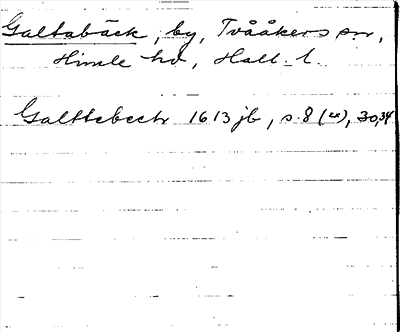 Galtabäck, by, Tvååkers sn,
Himle hd, Hall. l.
Galttebeck 1613 jb, s. 8 (2), 30, 34